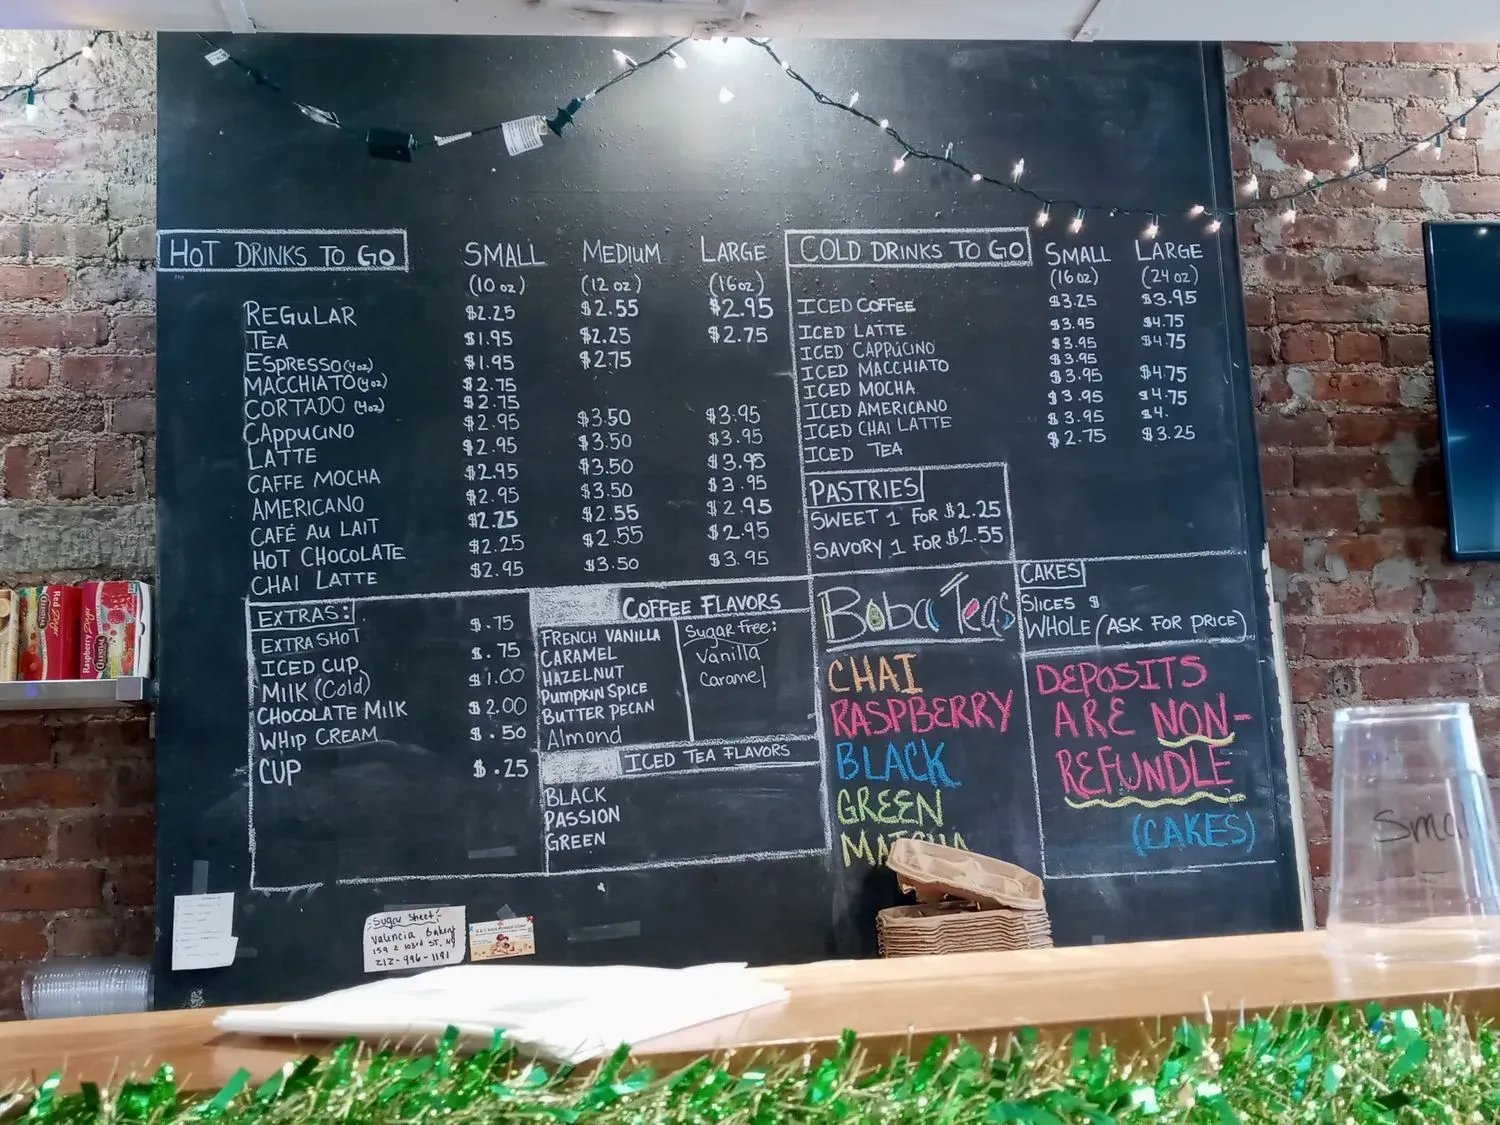 HOT DRINKS TO GO SMALL MEDIUM LARGE
(10 oz) (12 oz) (16 oz)
REGULAR $2.25 $2.55 $2.95
TEA $1.95 $2.25 $2.75
ESPRESSO (4oz) $1.95 $2.75
MACCHIATO (4oz) $2.75
CORTADO (4oz) $2.75
CAPPUCINO $2.95 $3.50 $3.95
LATTE $2.95 $3.50 $3.95
CAFFE MOCHA $2.95 $3.50 $3.95
AMERICANO $2.95 $3.50 $3.95
CAFÉ AU LAIT $2.25 $2.55 $2.95
HOT CHOCOLATE $2.25 $2.55 $2.95
CHAI LATTE $2.95 $3.50 $3.95
COLD DRINKS TO GO SMALL LARGE
(16 oz) (24 oz)
ICED COFFEE $3.25 $3.95
ICED LATTE $3.95 $4.75
ICED CAPPUCINO $3.95 $4.75
ICED MACCHIATO $3.95
ICED MOCHA $3.95 $4.75
ICED AMERICANO $3.95 $4.75
ICED CHAI LATTE $3.95 $4.
ICED TEA $2.75 $3.25
PASTRIES
SWEET 1 FOR $2.25
SAVORY 1 FOR $2.55
CAKES
SLICES $
WHOLE (ASK FOR PRICE)
EXTRAS:
EXTRA SHOT $.75
ICED CUP $.75
MILK (Cold) $1.00
CHOCOLATE MILK $2.00
WHIP CREAM $.50
CUP $.25
COFFEE FLAVORS
FRENCH VANILLA
CARAMEL
HAZELNUT
PUMPKIN SPICE
BUTTER PECAN
Almond
Sugar free:
Vanilla
Caramel
ICED TEA FLAVORS
BLACK
PASSION
GREEN
Boba Teas
CHAI
RASPBERRY
BLACK
GREEN
MATCHA
DEPOSITS
ARE NON-
REFUNDLE
(CAKES)
Sugar Sheet:
Valencia Bakery
159 E 103rd ST, NY
212-996-1191
Red
Zinger
Raspberry